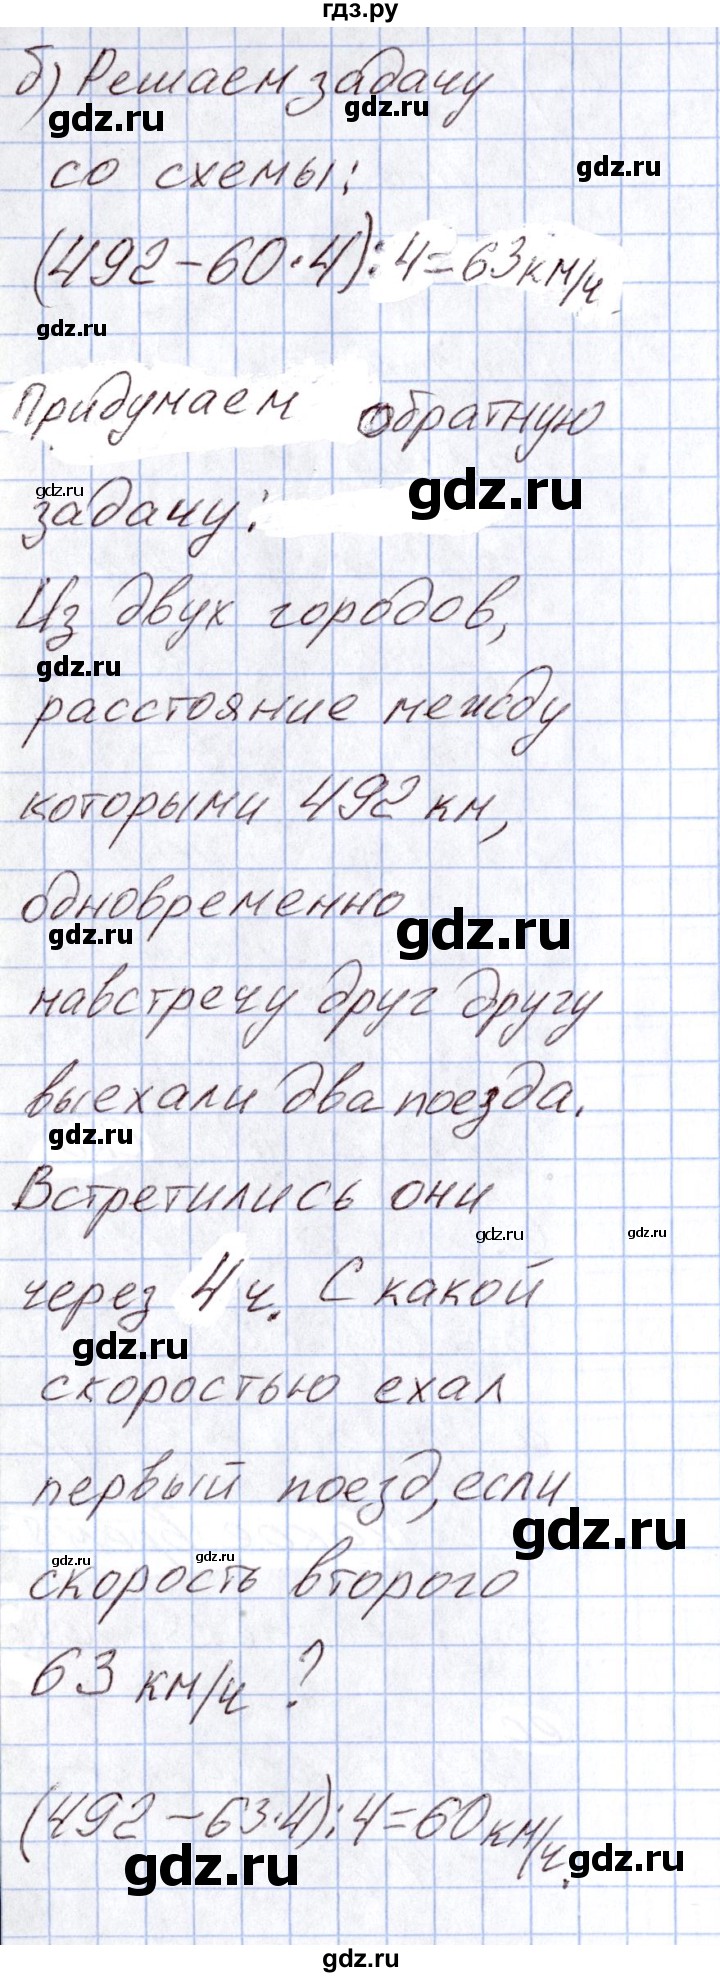 гдз.ру
б) Решаем задачу
gdz.ru
gdz.ru
со схемы:
gdz.ru
(492-60·4):4=63км/ч.
gdz.ru
Придумаем обратную
gdz.ru
gdz.ru
задачу:
Из двух городов,
gdz.ru
расстояние между
которыми 492 км,
одновременно
gdz.ru
gdz.ru
навстречу друг другу
выехали два поезда.
gdz.ru
Встретились они
gdz.ru
gdz.ru
через 4 ч. С какой
gdz.ru
скоростью ехал
первый поезд, если
gdz.ru
gdz.ru
gdz.ru
скорость второго
63 км/ч?
(492-63·4):4=60км/ч.
gdz.ru
gdz.ru
gdz.ru